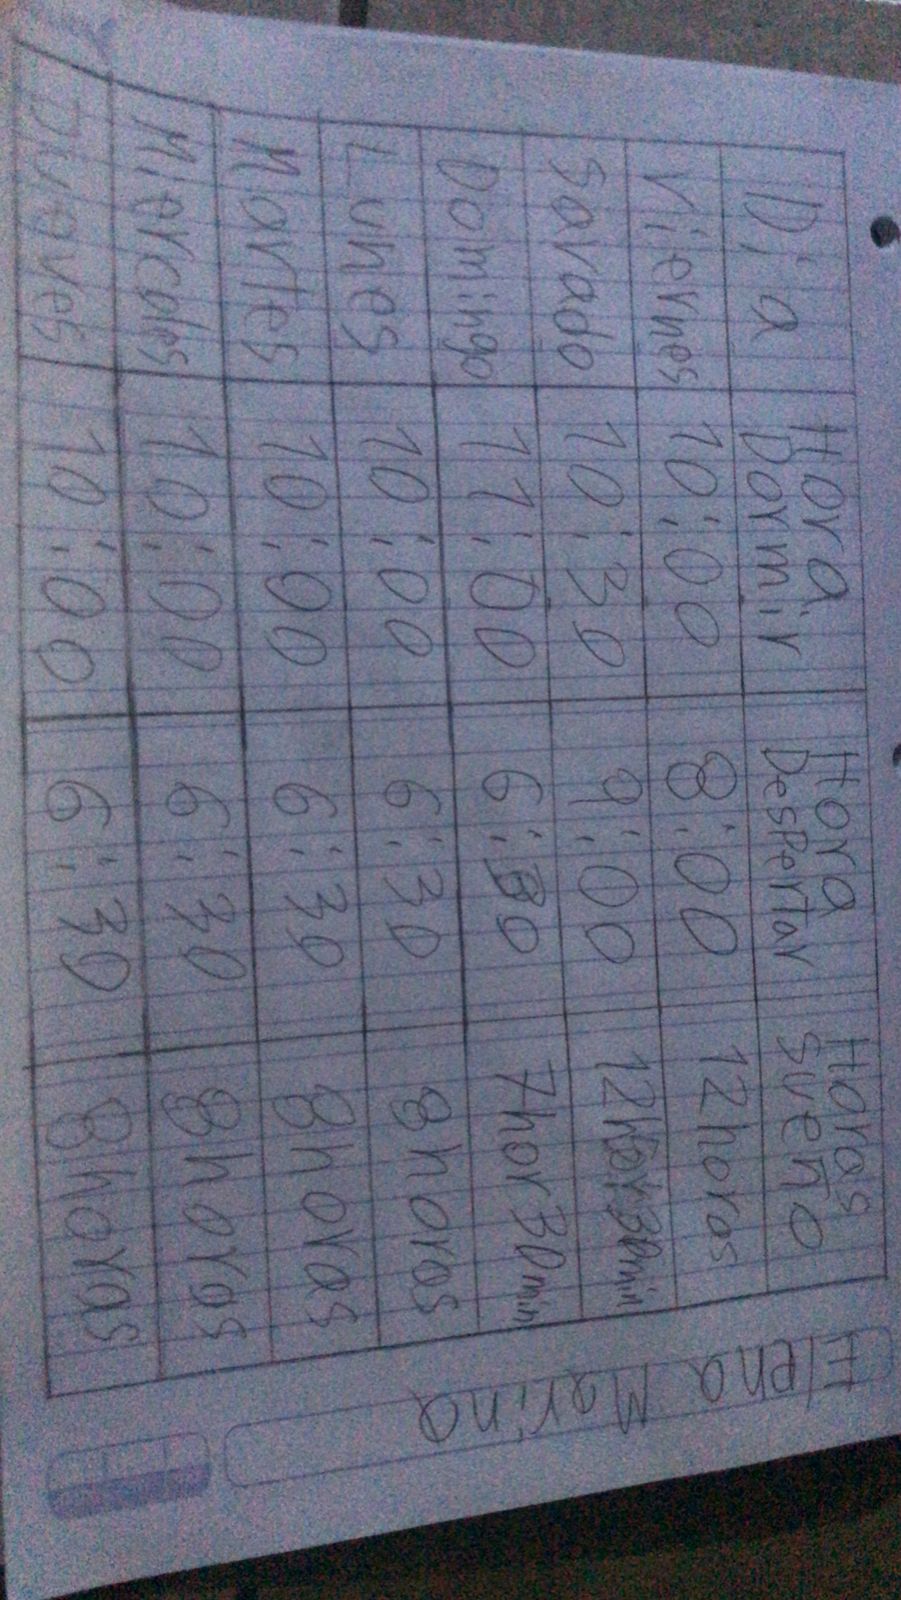 Elena Marina
Día Hora Dormir Hora Despertar Horas Sueño
Viernes 10:00 8:00 12 horas
Savado 10:30 9:00 12 hor 30 min
Domingo 11:00 6:30 7 hor 30 min
Lunes 10:00 6:30 8 horas
Martes 10:00 6:30 8 horas
Miercoles 10:00 6:30 8 horas
Jueves 10:00 6:30 8 horas